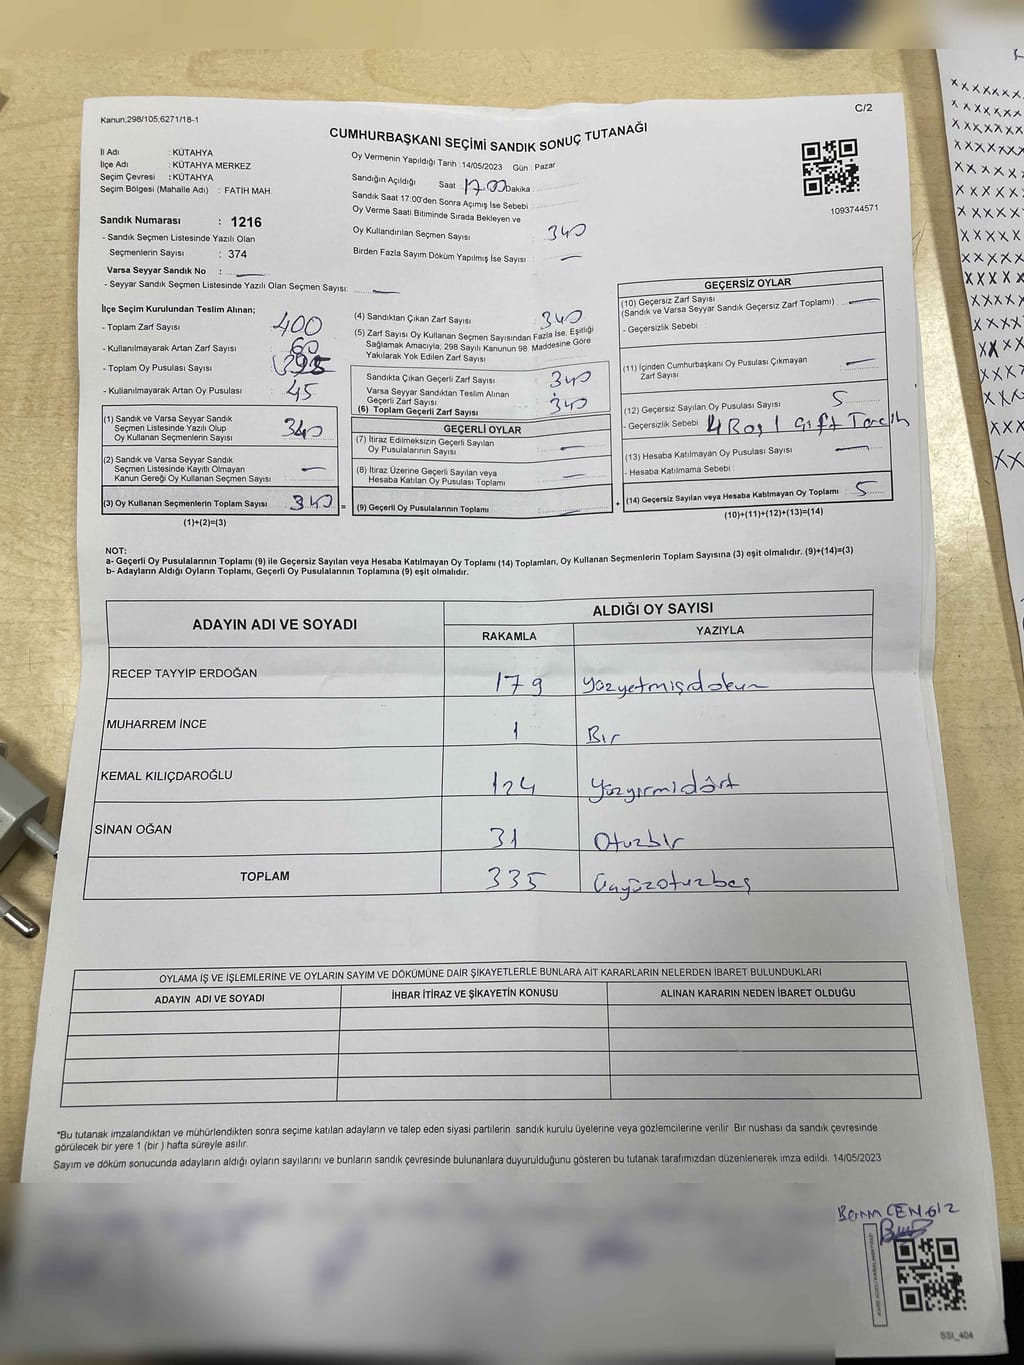 Kanun:298/105,6271/18-1
C/2
CUMHURBAŞKANI SEÇİMİ SANDIK SONUÇ TUTANAĞI
İl Adı : KÜTAHYA
İlçe Adı : KÜTAHYA MERKEZ
Seçim Çevresi : KÜTAHYA
Seçim Bölgesi (Mahalle Adı) : FATİH MAH.
Sandık Numarası : 1216
- Sandık Seçmen Listesinde Yazılı Olan
Seçmenlerin Sayısı : 374
Varsa Seyyar Sandık No :
- Seyyar Sandık Seçmen Listesinde Yazılı Olan Seçmen Sayısı:
Oy Vermenin Yapıldığı Tarih : 14/05/2023 Gün : Pazar
Sandığın Açıldığı Saat : 17.00 Dakika :
Sandık Saat 17:00'den Sonra Açımış İse Sebebi :
Oy Verme Saati Bitiminde Sırada Bekleyen ve
Oy Kullandırılan Seçmen Sayısı 340
Birden Fazla Sayım Döküm Yapılmış İse Sayısı : —
1093744571
İlçe Seçim Kurulundan Teslim Alınan;
- Toplam Zarf Sayısı 400
- Kullanılmayarak Artan Zarf Sayısı 60
- Toplam Oy Pusulası Sayısı
- Kullanılmayarak Artan Oy Pusulası 45
(1) Sandık ve Varsa Seyyar Sandık
Seçmen Listesinde Yazılı Olup
Oy Kullanan Seçmenlerin Sayısı 340
(2) Sandık ve Varsa Seyyar Sandık
Seçmen Listesinde Kayıtlı Olmayan
Kanun Gereği Oy Kullanan Seçmen Sayısı : —
(3) Oy Kullanan Seçmenlerin Toplam Sayısı : 340
(1)+(2)=(3)
(4) Sandıktan Çıkan Zarf Sayısı : 340
(5) Zarf Sayısı Oy Kullanan Seçmen Sayısından Fazla İse, Eşitliği
Sağlamak Amacıyla; 298 Sayılı Kanunun 98. Maddesine Göre
Yakılarak Yok Edilen Zarf Sayısı
Sandıkta Çıkan Geçerli Zarf Sayısı : 340
Varsa Seyyar Sandıktan Teslim Alınan
Geçerli Zarf Sayısı
(6) Toplam Geçerli Zarf Sayısı : 340
GEÇERLİ OYLAR
(7) İtiraz Edilmeksizin Geçerli Sayılan
Oy Pusulalarının Sayısı : —
(8) İtiraz Üzerine Geçerli Sayılan veya
Hesaba Katılan Oy Pusulası Toplamı : —
= (9) Geçerli Oy Pusulalarının Toplamı : —
GEÇERSİZ OYLAR
(10) Geçersiz Zarf Sayısı
(Sandık ve Varsa Seyyar Sandık Geçersiz Zarf Toplamı) : —
- Geçersizlik Sebebi :
(11) İçinden Cumhurbaşkanı Oy Pusulası Çıkmayan
Zarf Sayısı : —
(12) Geçersiz Sayılan Oy Pusulası Sayısı : 5
- Geçersizlik Sebebi : 4 Boş 1 Çift Tercih
(13) Hesaba Katılmayan Oy Pusulası Sayısı : —
- Hesaba Katılmama Sebebi :
+ (14) Geçersiz Sayılan veya Hesaba Katılmayan Oy Toplamı : 5
(10)+(11)+(12)+(13)=(14)
NOT:
a- Geçerli Oy Pusulalarının Toplamı (9) ile Geçersiz Sayılan veya Hesaba Katılmayan Oy Toplamı (14) Toplamları, Oy Kullanan Seçmenlerin Toplam Sayısına (3) eşit olmalıdır. (9)+(14)=(3)
b- Adayların Aldığı Oyların Toplamı, Geçerli Oy Pusulalarının Toplamına (9) eşit olmalıdır.
ADAYIN ADI VE SOYADI ALDIĞI OY SAYISI
RAKAMLA YAZIYLA
RECEP TAYYİP ERDOĞAN 179 Yüzyetmişdokuz
MUHARREM İNCE 1 Bir
KEMAL KILIÇDAROĞLU 124 Yüzyirmidört
SİNAN OĞAN 31 Otuzbir
TOPLAM 335 Üçyüzotuzbeş
OYLAMA İŞ VE İŞLEMLERİNE VE OYLARIN SAYIM VE DÖKÜMÜNE DAİR ŞİKAYETLERLE BUNLARA AİT KARARLARIN NELERDEN İBARET BULUNDUKLARI
ADAYIN ADI VE SOYADI İHBAR İTİRAZ VE ŞİKAYETİN KONUSU ALINAN KARARIN NEDEN İBARET OLDUĞU
*Bu tutanak imzalandıktan ve mühürlendikten sonra seçime katılan adayların ve talep eden siyasi partilerin sandık kurulu üyelerine veya gözlemcilerine verilir. Bir nüshası da sandık çevresinde
görülecek bir yere 1 (bir ) hafta süreyle asılır.
Sayım ve döküm sonucunda adayların aldığı oyların sayılarını ve bunların sandık çevresinde bulunanlara duyurulduğunu gösteren bu tutanak tarafımızdan düzenlenerek imza edildi. 14/05/2023
CENGİZ
SSI_404